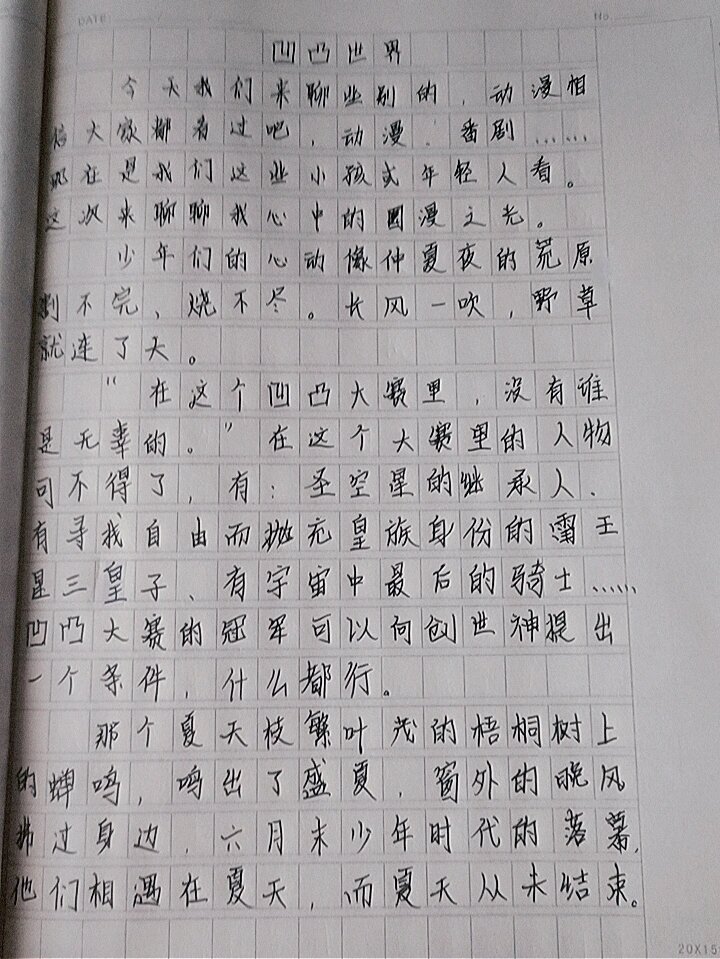 DATE
No
凹凸世界
今天我们来聊些别的，动漫相
信大家都看过吧，动漫、番剧……
都在是我们这些小孩或年轻人看。
这次来聊聊我心中的国漫之光。
少年们的心动像仲夏夜的荒原
割不完、烧不尽。长风一吹，野草
就连了天。
“在这个凹凸大赛里，没有谁
是无辜的。”在这个大赛里的人物
可不得了，有：圣空星的继承人、
有寻找自由而抛充皇族身份的雷王
星三皇子、有宇宙中最后的骑士……
凹凸大赛的冠军可以向创世神提出
一个条件，什么都行。
那个夏天枝繁叶茂的梧桐树上
的蝉鸣，鸣出了盛夏，窗外的晚风
拂过身边，六月末少年时代的落幕，
他们相遇在夏天，而夏天从未结束。
20X15